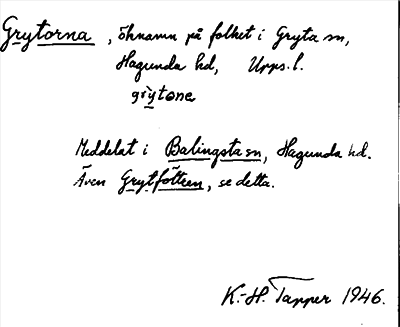 Grytorna, öknamn på folket i Gryta sn,
Hagunda hd, Upps. l.
grỳtone
Meddelat i Balingsta sn, Hagunda hd.
Även Grytfötren, se detta.
K.-H. Tapper 1946.